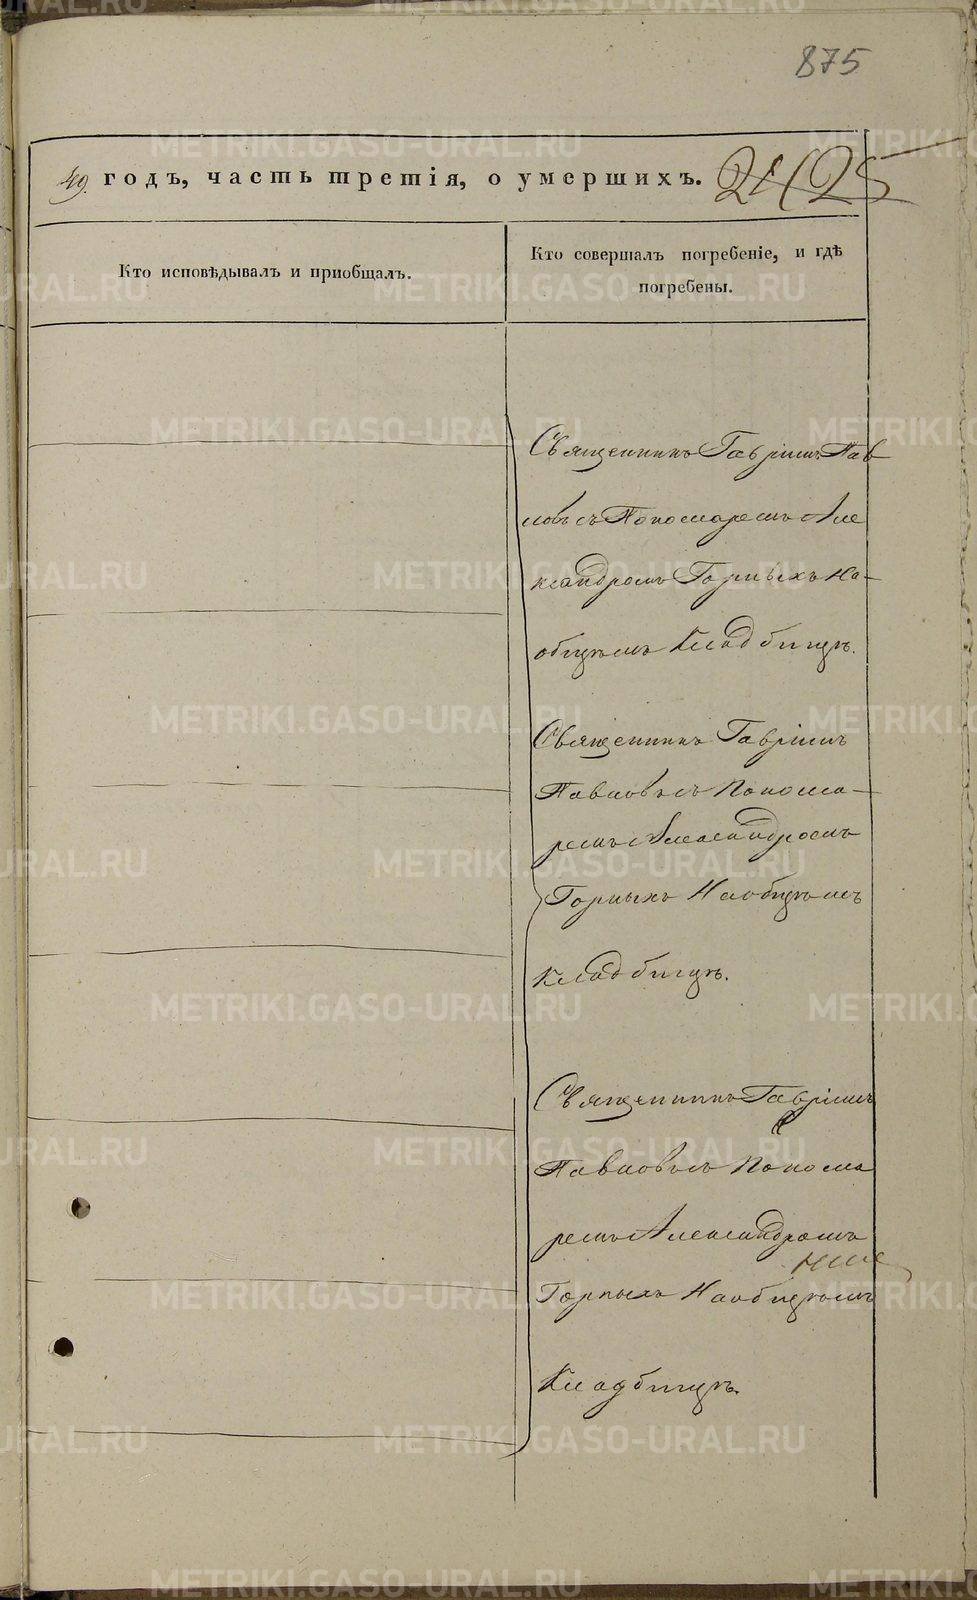 875
49 годъ, часть третія, о умершихъ.
Кто исповѣдывалъ и приобщалъ.
Кто совершалъ погребеніе, и гдѣ
погребены.
Священникъ Гавріилъ Пав
ловъ съ Пономаремъ Але
ксандромъ Горныхъ На-
общемъ Кладбищѣ.
Священникъ Гавріилъ
Павловъ съ Понома-
ремъ Александромъ
Горныхъ На общемъ
Кладбищѣ.
Священникъ Гавріилъ
Павловъ съ Понома
ремъ Александромъ
Горныхъ На общемъ
Кладбищѣ.
METRIKI.GASO-URAL.RU